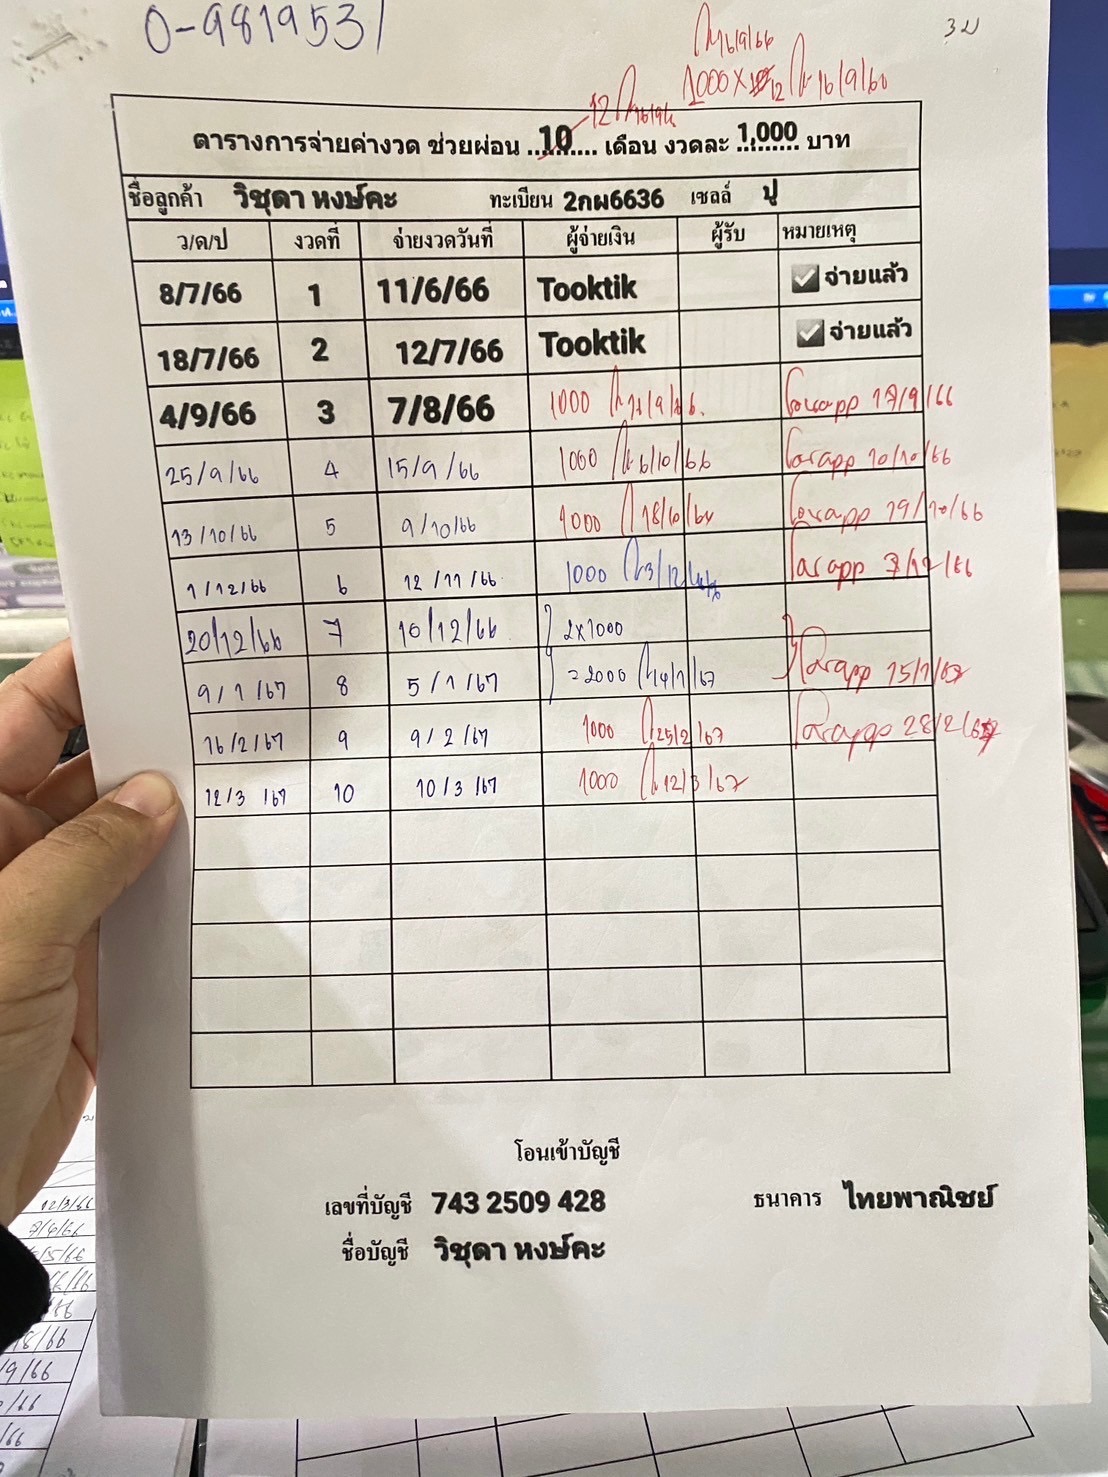 0-9819531
3ม
16/9/66
1000 x 12 16/9/66
12
ตารางการจ่ายค่างวด ช่วยผ่อน ...10... เดือน งวดละ 1,000 บาท
ชื่อลูกค้า วิชุดา หงษ์คะ ทะเบียน 2กผ6636 เซลล์ ปู
ว/ด/ป งวดที่ จ่ายงวดวันที่ ผู้จ่ายเงิน ผู้รับ หมายเหตุ
8/7/66 1 11/6/66 Tooktik ✅ จ่ายแล้ว
18/7/66 2 12/7/66 Tooktik ✅ จ่ายแล้ว
4/9/66 3 7/8/66 1000 โอนapp 17/9/66
25/9/66 4 15/9/66 1000 6/10/66 โอนapp 10/10/66
13/10/66 5 9/10/66 1000 โอนapp 19/10/66
1/12/66 6 12/11/66 1000 3/12/66 โอนapp 7/12/66
20/12/66 7 10/12/66 2x1000
9/1/67 8 5/1/67 =2000 14/1/67 โอนapp 15/1/67
16/2/67 9 9/2/67 1000 25/2/67 โอนapp 28/2/67
12/3/67 10 10/3/67 1000 12/3/67
โอนเข้าบัญชี
เลขที่บัญชี 743 2509 428 ธนาคาร ไทยพาณิชย์
ชื่อบัญชี วิชุดา หงษ์คะ
12/3/66
7/4/66
/5/66
8/66
/9/66
/66
/66